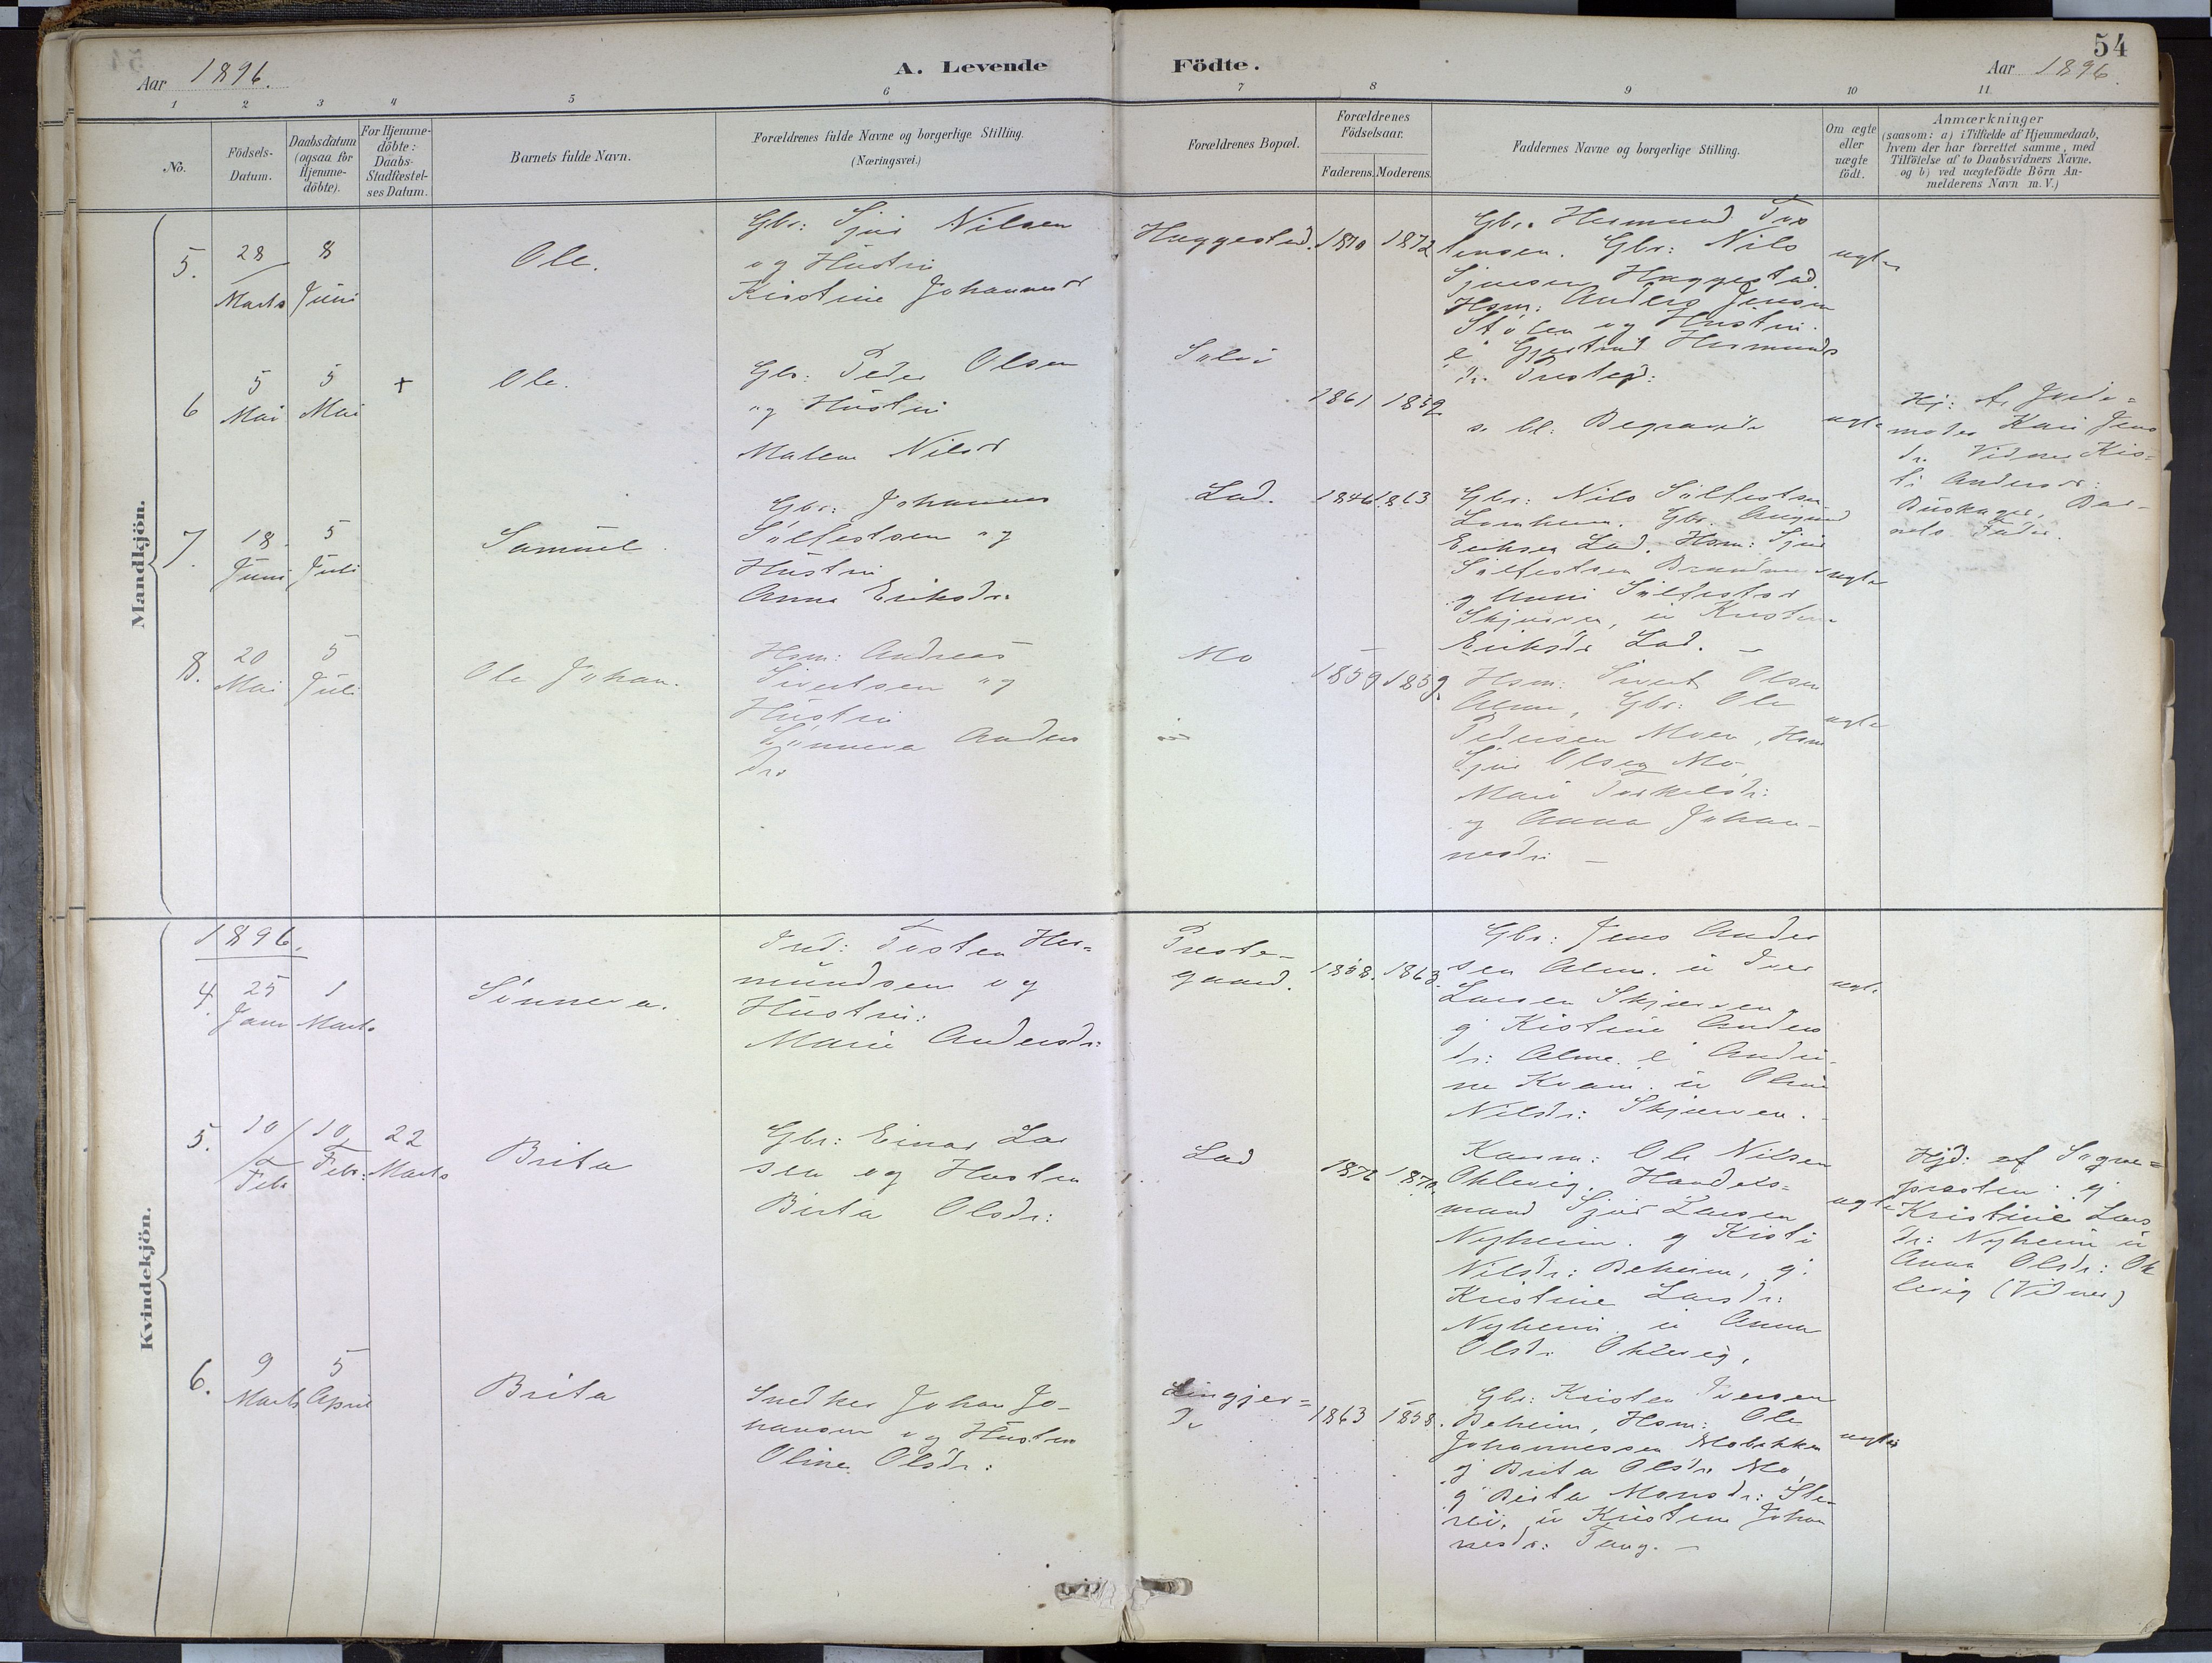 54
Aar 1896.
A. Levende Födte.
Aar 1896.
1 2 3 4 5 6 7 8 9 10 11
No.
Födsels-Datum.
Daabsdatum (ogsaa for Hjemme-döbte).
For Hjemme-döbte: Daabs-Stadfæstel-ses Datum.
Barnets fulde Navn.
Forældrenes fulde Navne og borgerlige Stilling.
(Næringsvei.)
Forældrenes Bopæl.
Forældrenes Födselsaar.
Faderens. Moderens.
Faddernes Navne og borgerlige Stilling.
Om ægte eller uægte födt.
Anmærkninger
(saasom: a) i Tilfælde af Hjemmedaab,
hvem der har forrettet samme, med
Tilföielse af to Daabsvidners Navne.
og b) ved uægtefödte Börn An-
melderens Navn m. V.)
Mandkjön.
5.
28 Marts
8 Juni
Ole.
Gbr: Sjur Nilsen
og Hustru
Kristine Johannesd
Haggestad.
1870 1872
Gbr. Hermund
Gbr: Nils
Sjursen Haggestad.
Hsm: Anders Jensen
Stölen og Hustru.
Hermunds
dr.
ægte
6
5 Mai
5 Mai
+
Ole.
Gbr: Peder Olsen
og Hustru
Malene Nilsd
1861 1859
ægte
Kari Jens
dr. Vidner Kis-
ti Andersdr:
Bar-
nets Fader.
7.
18. Juni
5 Juli
Samuel.
Gbr: Johannes
Sölfestsen og
Hustru
Anna Eriksdr.
Lad.
1846 1863
Gbr: Nils Sölfestsen
Gbr.
Eriksen Lad. Hsm: Sjur
Sölfestsen
Skjerven, u Kristen
Eriksdr Lad. —
ægte
8.
20 Mai
5 Juli
Ole Johan.
Hsm: Andreas
Sivertsen og
Hustru
Sönneva Anders
dr.
Mo
1859 1859
Hsm: Sivert Olsen
Alme, Gbr: Ole
Pedersen Moen, Hsm
Sjur Olsen Mo,
Mari Torkelsdr:
og Anna Johan-
nesdr. —
ægte
Kvindekjön.
1896.
4.
25 Janr
1 Marts
Sönneva.
Ind: Tosten Her-
mundsen og
Hustru:
Marie Andersdr:
Preste-
gaard.
1858. 1863.
Gbr: Jens Ander
sen Alme. u Iver
Larsen Skjerven
g Kistine Anders
dr: Alme. e Andri-
ne Kvam. u Oline
Nilsdr: Skjerven.
ægte
5.
10 Febr
10 Febr:
22 Marts
Brita
Gbr: Einar Lar
sen og Hustru
Brita Olsdr:
Lad
1872 1870.
Ole Nilsen
Oklevig. Handels-
mand Sjur Larsen
Nyheim. g Kisti
Nilsdr: Beheim, g.
Kristine Larsdr:
Nyheim u Anna
Olsdr Oklevig.
ægte
Hjd: af Sogne-
presten: g
Kristine Lars
dr: Nyheim u
Anna Olsdr: Ok
levig (Vidner)
6.
9 Marts
5 April
Brita
Snedker Johan Jo-
hansen og Hustru
Oline Olsdr:
Lingjer-
de
1863 1858.
Gbr: Kristen Iversen
Beheim, Hsm: Ole
Johannessen
g Brita Olsdr Mo
g Brita Monsdr:
u Kristine Johan
nesdr: Tang. —
ægte